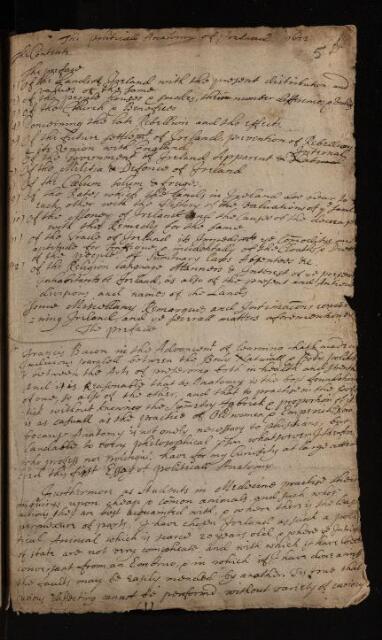 The politicall Anatomy of Ireland 1672
5
The Contents
The preface
of the Lands of Ireland with the present distribution and
values of the same
of the People Houses & smoaks, their number difference &
of the Church & Benefices
Concerning the late Rebellion and the effects
of the future settlemt of Ireland, prevention of Rebellions
its Union with England
of the Government of Ireland Apparent &
of the Militia & Defence of Ireland
of the Caelum Solum &
of the Rates wch of the Lands in Ireland
each other with the History of the valuations of
of the Money of Ireland and the Causes of the
with the Remedy for the same
of the Trade of Ireland its
of the people of Sumptuary laws Absentees &c
of the Religion language Manners & Interest of ye present
Inhabitants of Ireland, as also of the present and Antient
divisions and names of the Lands
Some Miscellany Remarques and Intimations concer
ning Ireland and ye severall matters aforementioned
The preface
Francis Bacon in the Advancmt of learning hath made a
Judicious parallel between the Body Naturall & Body politick
& between the Arts of preserving both in health and strength
And it is Reasonable that as Anatomy is the best foundation
of one, so also of the other, and that to practice on the
tick without knowing the Simmetry Fabrick & proportion of it
is as casuall as the practice of Old women & Empyricks. Now
because Anatomy is not onely necessary to phisitians, but
laudable to every philosophicall person whatsoever; I therefore
who profess not politicks, have for my Curiosity at large attem
pted this first Essay of Politicall Anatomy.
Furthermore as Students in Medicine practise their
inquiries upon cheape & comon animals and such whose
actions they are best acquainted with, & where there is the least
perplexure of parts, I have chosen Ireland as such a poli
ticall Animal which is scarce 20 years old, & where ye Intrigue
of state are not very complicate and with which I have been
conversant from an Embrio, & in which if I have done amiss
the fault may be easily mended by another. Its true that
curious dissecting cannot be performed without variety of